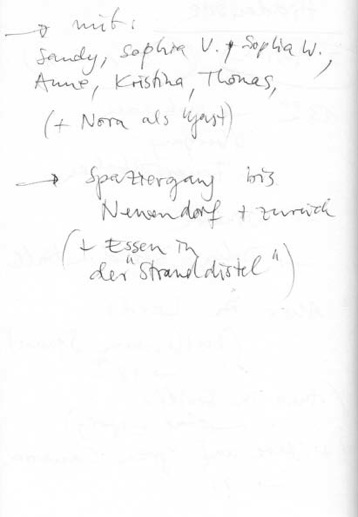 → mit:
Sandy, Sophia V. + Sophia W.,
Anne, Kristina, Thomas,
(+ Nora als Gast)
→ Spaziergang bis
Neuendorf + zurück
(+ Essen in
der "Stranddistel")